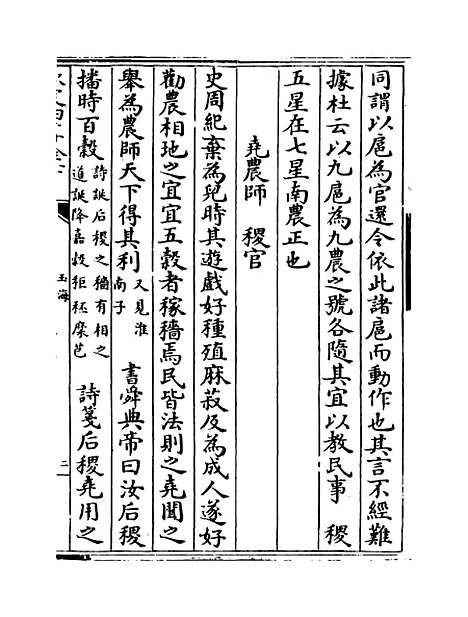 同謂以扈為官還令依此諸扈而動作也其言不經難
據杜云以九扈為九農之號各隨其宜以教民事　稷
五星在七星南農正也
堯農師　稷官
史周紀棄為兒時其遊戲好種殖麻菽及為成人遂好
勸農相地之宜宜五穀者稼穡焉民皆法則之堯聞之
舉為農師天下得其利又見淮南子　書舜典帝曰汝后稷
播時百穀詩誕后稷之穡有相之道誕降嘉穀秬秠穈芑　詩箋后稷堯用之
玉海
二